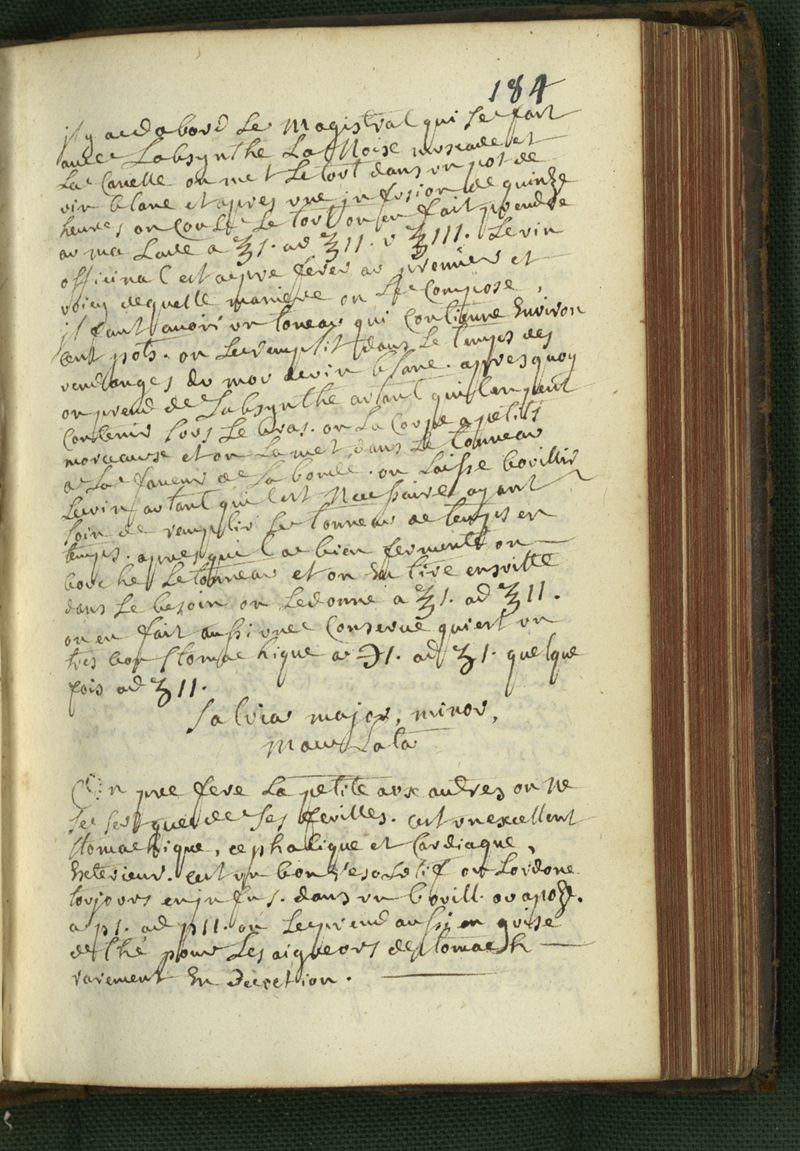 184
jl y a dabord le Magistral qui se fait
avec Labsynthe La Noise muscade et
La Canelle on met le tout dans un pot de
vin blanc et apres une jnfusion de quinze
heures on coule le tout on en fait prendre
au malade a ℥1. ad ℥11. v ℥111. Le vin
officinal est a preferer au premier et
voicy de quelle maniere on le compose,
jl faut avoir un toneau qui contienne Environ
cent pots. on le remplit dans le temps des
vendanges du mou de vin blanc. apres quoy
on prend de Labsynthe autant quil en peut
contenir sous le bras. on La coupe a petits
morceause et on La met dans le tonneau
a La faveur de La bonde. on laisse bovillir
Le vin autant quil est Necessaire ayant
soin de remplir le tonneau de temps en
temps. apres quil a bien fermenté on
bouche le tonneau et on En tire ensvitte
dans le besoin on le donne a ℥1. ad ℥11.
on en fait aussi une Conserve qui est un
tres bon stomachique a ℈1. ad ʒ1. quelque
fois ad ʒ11.
Salvia major, minor,
maculata
On prefere La petite aux autres on ne
se sert que de ses fevilles. cest un excellent
stomachique, cephalique et Cardiaque,
Exterieur. cest un bon resolutif on Lordone
toujours en jnfus. dans un bovill. ou apoz.
a p1. ad p11. on Le prend aussi en guise
de thé pour Les aigreurs destomach
rarement En Decoction.